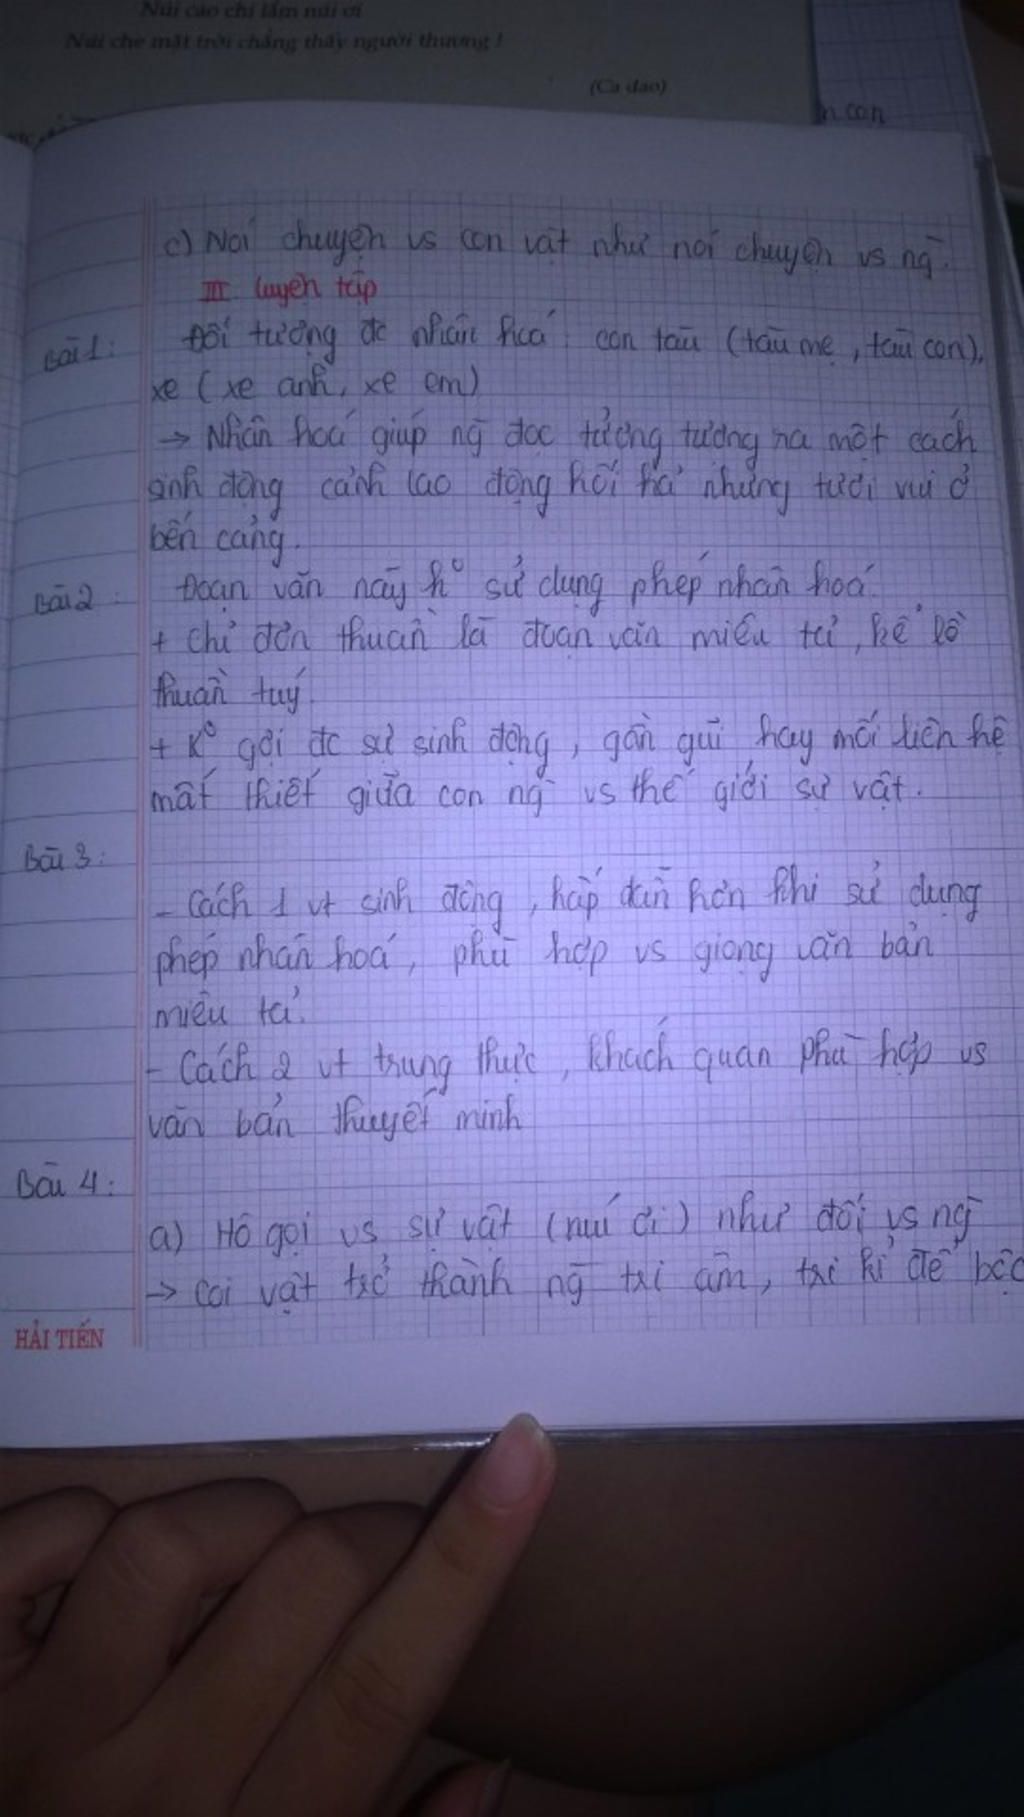 Núi cao chi lắm núi ơi
Núi che mặt trời chẳng thấy người thương !
(Ca dao)
n con
c) Nói chuyện vs con vật như nói chuyện vs ng̀.
III luyện tập
Bài 1: Đối tượng đc nhân hoá: con tàu (tàu mẹ, tàu con),
xe (xe anh, xe em)
→ Nhân hoá giúp ng̀ đọc tưởng tượng ra một cách
sinh động cảnh lao động hối hả nhưng tươi vui ở
bến cảng.
Bài 2: Đoạn văn này k° sử dụng phép nhân hoá.
+ Chỉ đơn thuần là đoạn văn miêu tả, kể lể
thuần tuý.
+ K° gợi đc sự sinh động, gần gũi hay mối liên hệ
mất thiết giữa con ng̀ vs thế giới sự vật.
Bài 3:
- Cách 1 vt sinh động, hấp dẫn hơn khi sử dụng
phép nhân hoá, phù hợp vs giọng văn bản
miêu tả.
- Cách 2 vt trung thực, khách quan phù hợp vs
văn bản thuyết minh
Bài 4:
a) Hô gọi vs sự vật (núi ơi) như đối vs ng̀
→ Coi vật trở thành ng̀ tri âm, tri kỉ để bộc
HẢI TIẾN